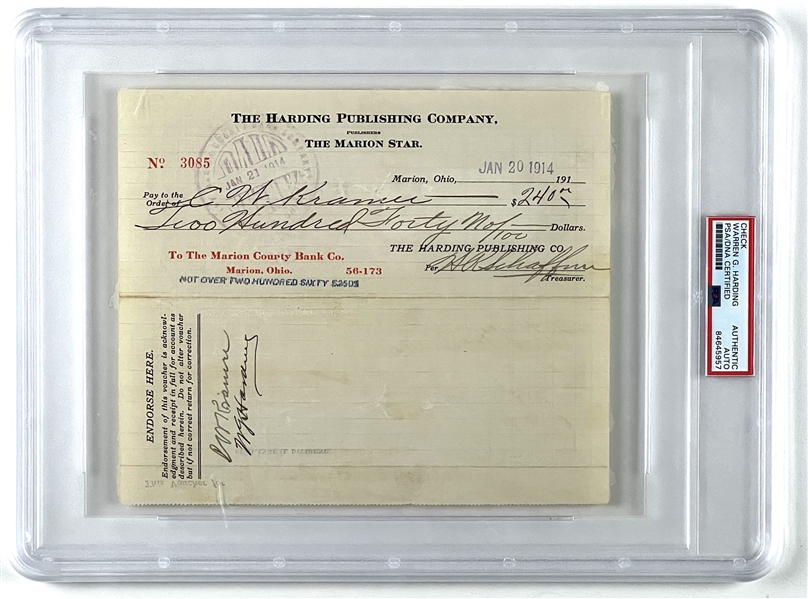 THE HARDING PUBLISHING COMPANY,
PUBLISHERS
THE MARION STAR.
No 3085
JAN 21 1914
JAN 20 1914
Marion, Ohio, 191
Pay to the
Order of C W Kramer $240 00
Two Hundred Forty No/100 Dollars.
THE HARDING PUBLISHING CO.
To The Marion County Bank Co.
Marion, Ohio. 56-173
Per H R Schaffner
Treasurer.
NOT OVER TWO HUNDRED SIXTY $260$
ENDORSE HERE.
Endorsement of this voucher is acknowl-
edgment and receipt in full for account as
described herein. Do not alter voucher
but if not correct return for correction.
C W Kramer
W G Harding
This Voucher for
CHECK
WARREN G. HARDING
PSA/DNA CERTIFIED
AUTHENTIC
AUTO
84645957